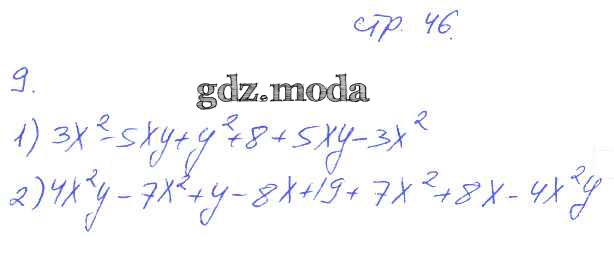 стр. 46.
9.
gdz.moda
1) 3x²-5xy+y²+8+5xy-3x²
2) 4x²y-7x²+y-8x+19+7x²+8x-4x²y